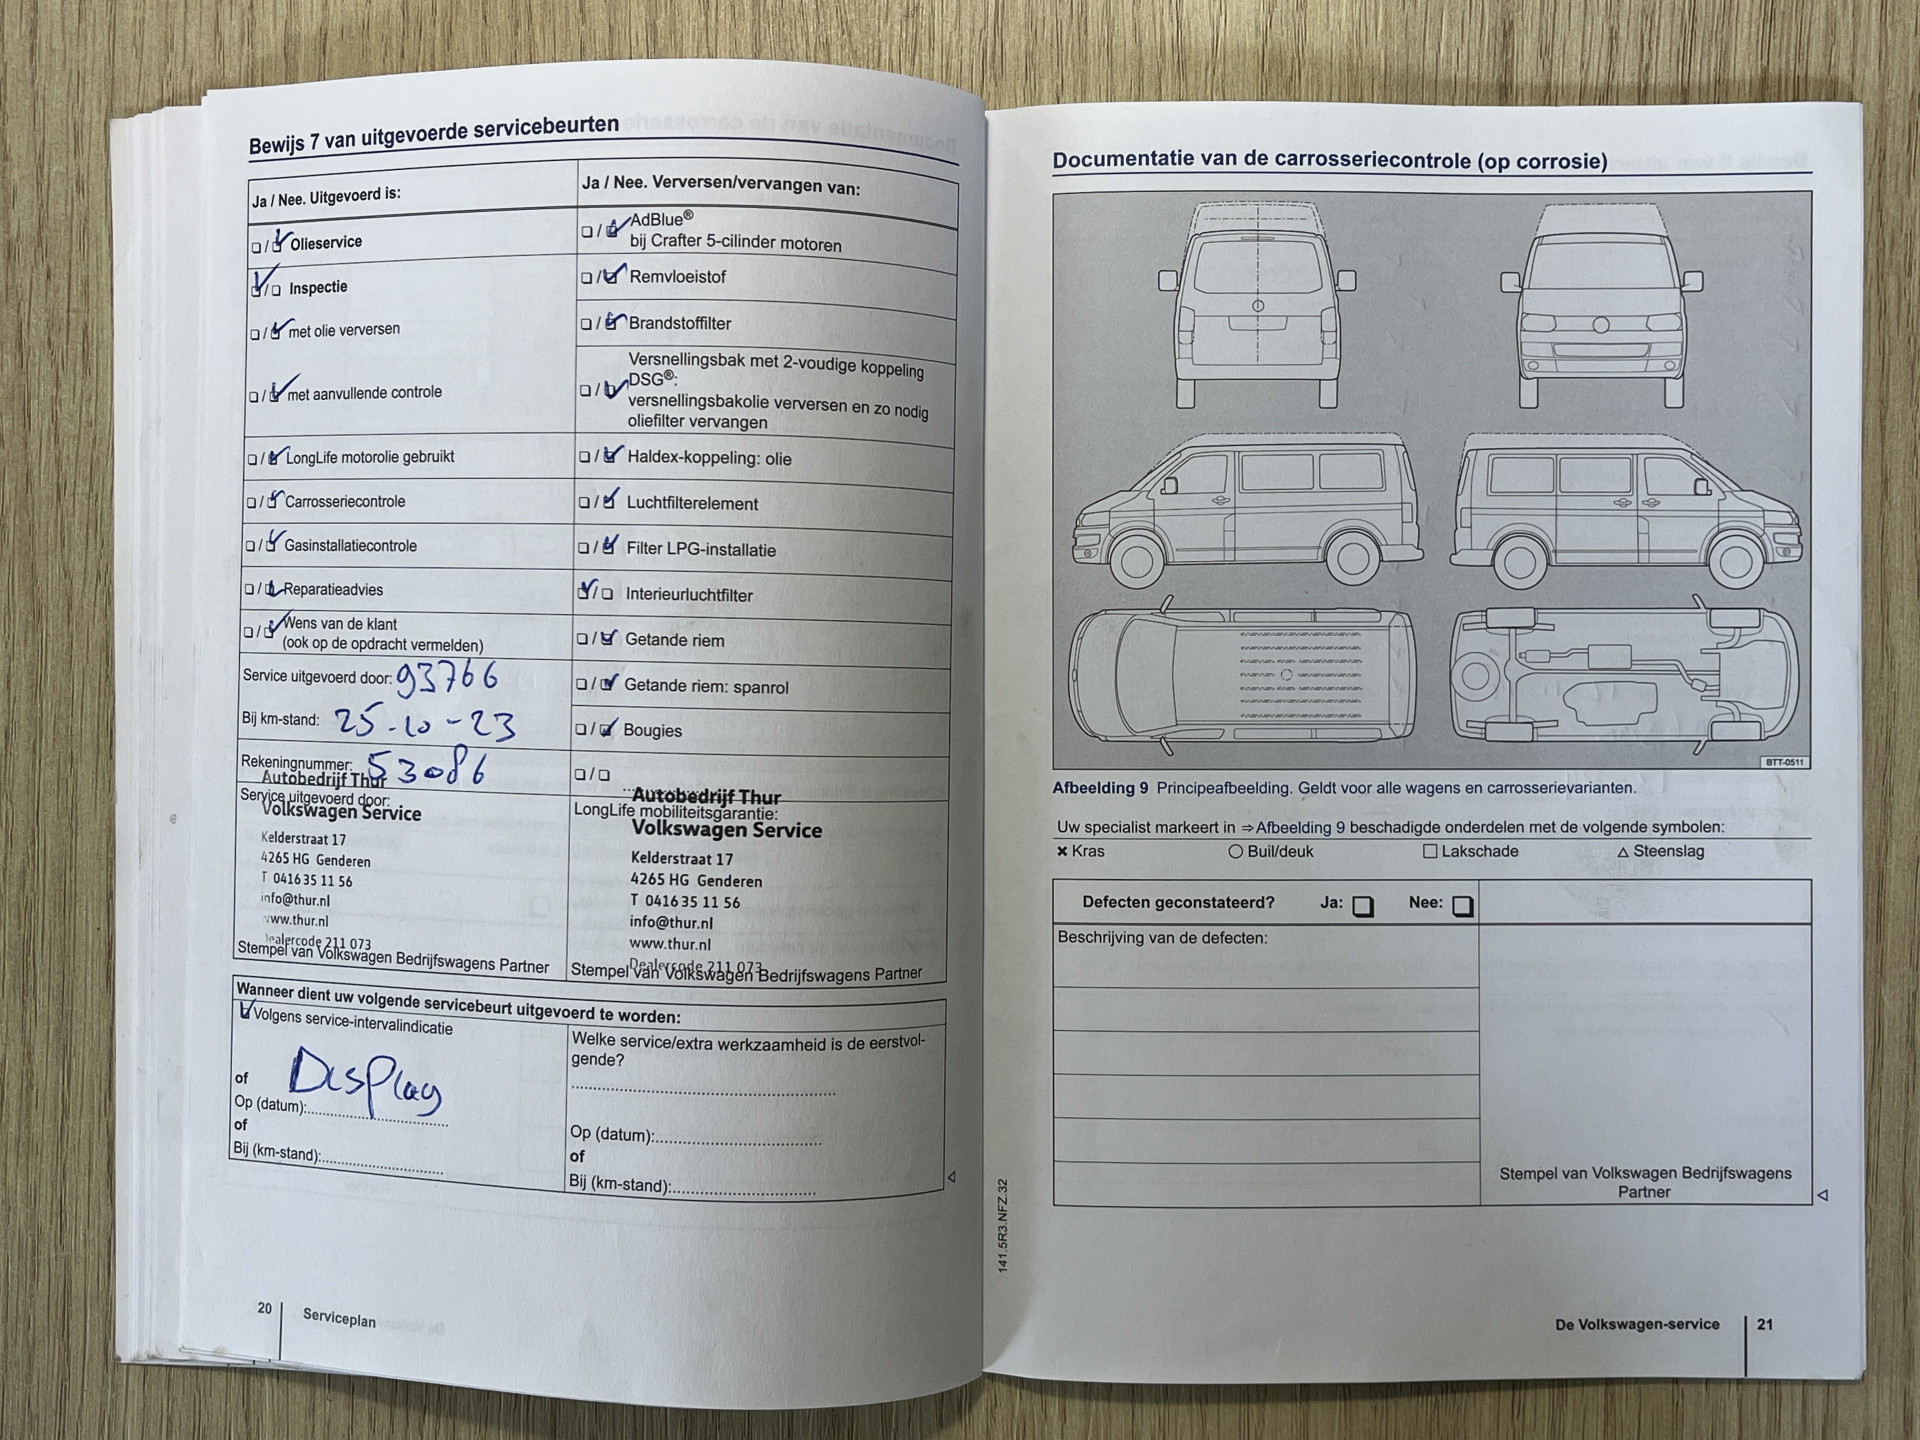 Bewijs 7 van uitgevoerde servicebeurten
Ja / Nee. Uitgevoerd is:
❑ / ❑ Olieservice
❑ / ❑ Inspectie
❑ / ❑ met olie verversen
❑ / ❑ met aanvullende controle
❑ / ❑ LongLife motorolie gebruikt
❑ / ❑ Carrosseriecontrole
❑ / ❑ Gasinstallatiecontrole
❑ / ❑ Reparatieadvies
❑ / ❑ Wens van de klant
(ook op de opdracht vermelden)
Service uitgevoerd door: 93766
Bij km-stand: 25-10-23
Rekeningnummer: 53086
Ja / Nee. Verversen/vervangen van:
❑ / ❑ AdBlue®
bij Crafter 5-cilinder motoren
❑ / ❑ Remvloeistof
❑ / ❑ Brandstoffilter
Versnellingsbak met 2-voudige koppeling
❑ / ❑ DSG®:
versnellingsbakolie verversen en zo nodig
oliefilter vervangen
❑ / ❑ Haldex-koppeling: olie
❑ / ❑ Luchtfilterelement
❑ / ❑ Filter LPG-installatie
❑ / ❑ Interieurluchtfilter
❑ / ❑ Getande riem
❑ / ❑ Getande riem: spanrol
❑ / ❑ Bougies
❑ / ❑
Autobedrijf Thur
Service uitgevoerd door:
Volkswagen Service
Kelderstraat 17
4265 HG Genderen
T 0416 35 11 56
info@thur.nl
www.thur.nl
Dealercode 211 073
Stempel van Volkswagen Bedrijfswagens Partner
Autobedrijf Thur
LongLife mobiliteitsgarantie:
Volkswagen Service
Kelderstraat 17
4265 HG Genderen
T 0416 35 11 56
info@thur.nl
www.thur.nl
Dealercode 211 073
Stempel van Volkswagen Bedrijfswagens Partner
Wanneer dient uw volgende servicebeurt uitgevoerd te worden:
Volgens service-intervalindicatie
Display
of
Op (datum):
of
Bij (km-stand):
Welke service/extra werkzaamheid is de eerstvol-
gende?
Op (datum):
of
Bij (km-stand):
20 Serviceplan
Documentatie van de carrosseriecontrole (op corrosie)
BTT-0511
Afbeelding 9 Principeafbeelding. Geldt voor alle wagens en carrosserievarianten.
Uw specialist markeert in ⇒ Afbeelding 9 beschadigde onderdelen met de volgende symbolen:
✖ Kras ○ Buil/deuk □ Lakschade △ Steenslag
Defecten geconstateerd? Ja: ❑ Nee: ❑
Beschrijving van de defecten:
Stempel van Volkswagen Bedrijfswagens
Partner
141.5R3.NFZ.32
De Volkswagen-service 21